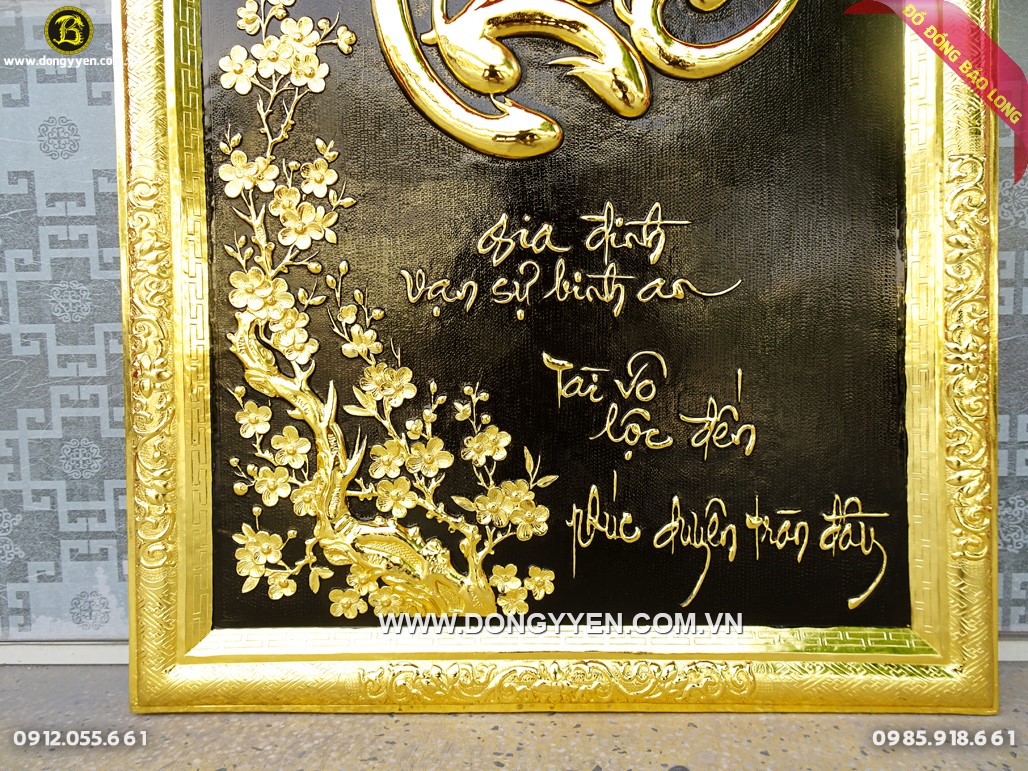 B
www.dongyyen.com.vn
ĐỒ ĐỒNG BẢO LONG
gia đình
vạn sự bình an
Tài vô
lộc đến
phúc duyên tràn đầy
WWW.DONGYYEN.COM.VN
0912.055.661
0985.918.661